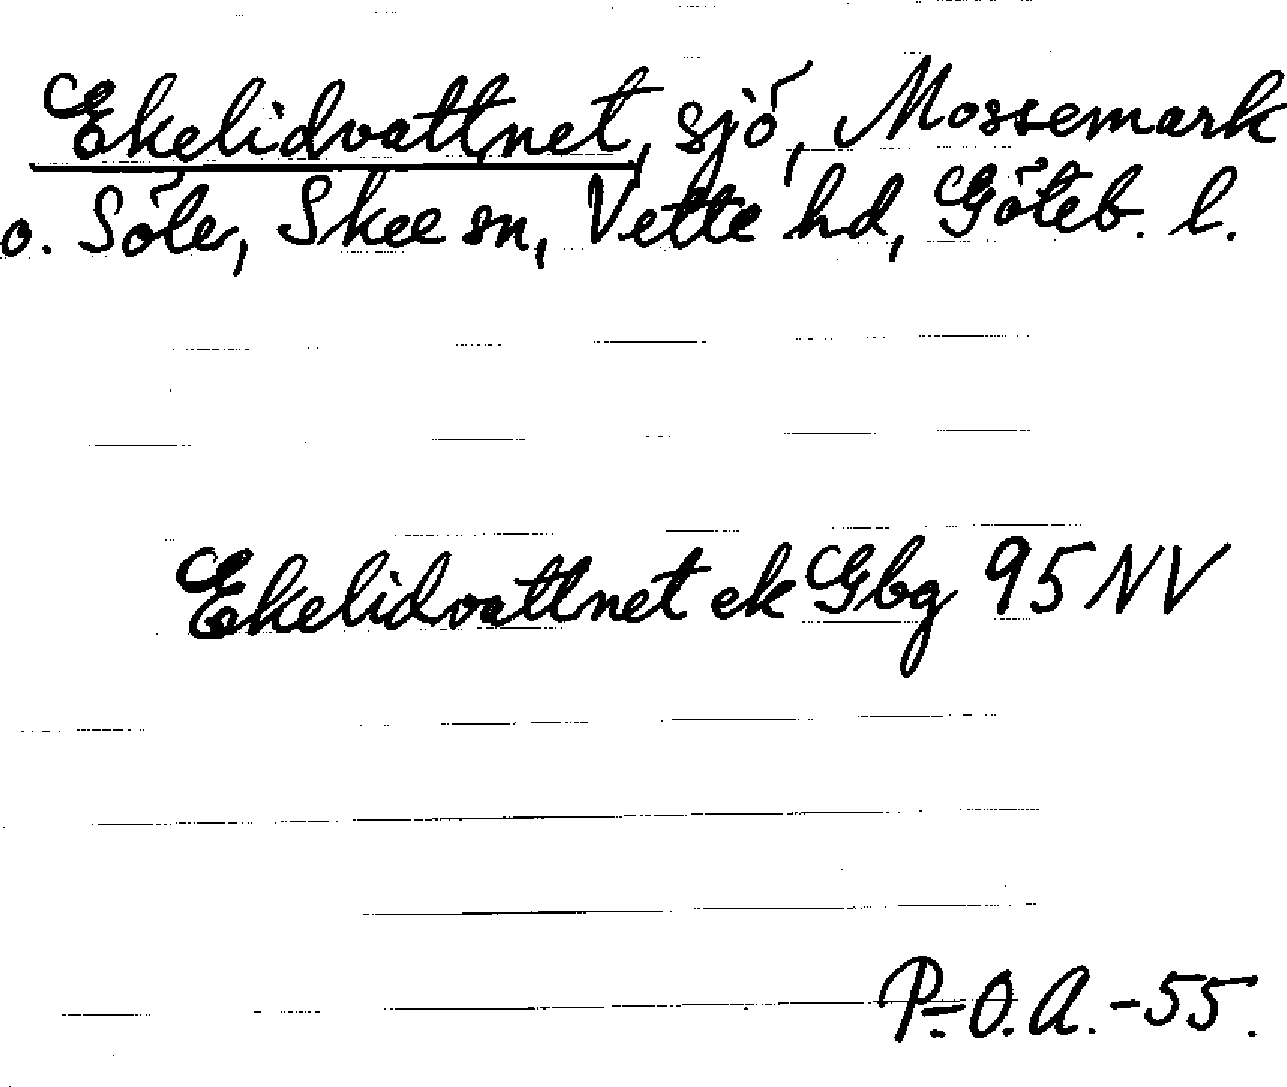 Ekelidvattnet, sjö, Mossemark
o. Söle, Skee sn, Vette hd, Göteb. l.
Ekelidvattnet ek Gbg 95 NV
P.-O.A.-55.